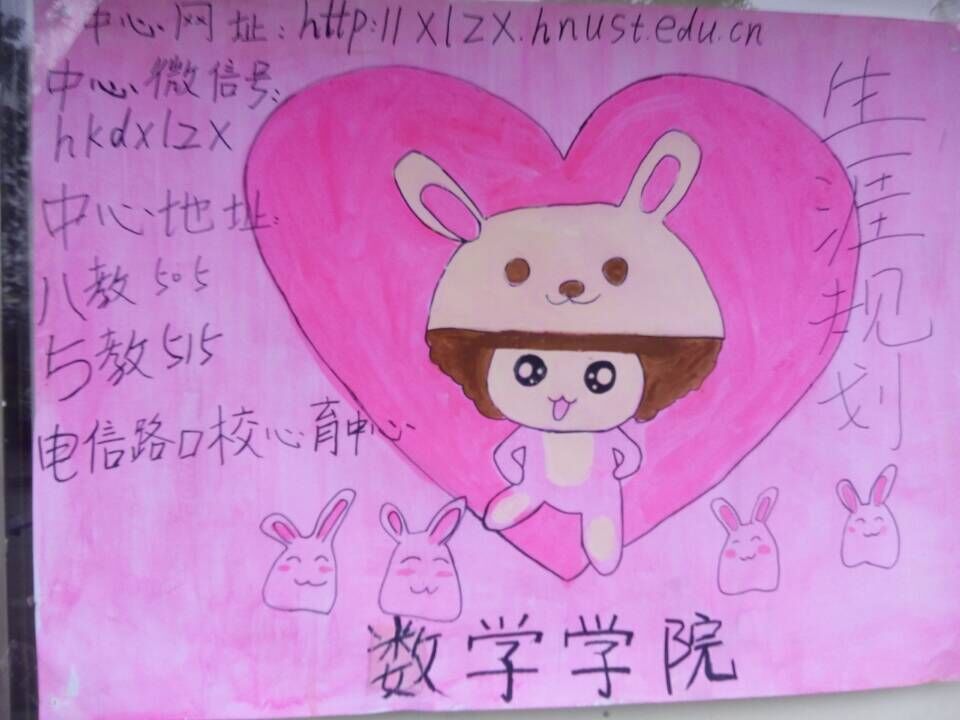 中心网址:http://xlzx.hnust.edu.cn
中心微信号:
hkdxlzx
中心地址:
八教505
5教515
电信路口校心育中心
生涯规划
数学学院